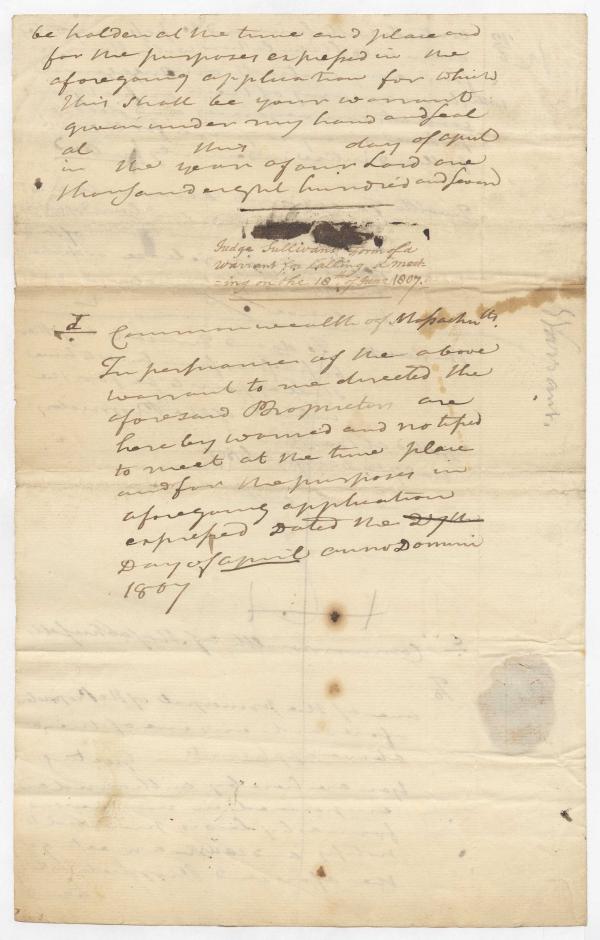 be holden at the time and place and
for the purposes expressed in the
aforegoing application for which
this shall be your warrant
given under my hand and seal
at this day of April
in the year of our Lord one
thousand eight hundred and seven
Judge Sullivans form of a
warrant for calling a meet
-ing on the 18th of June 1807.
Commonwealth of Massachutts.
In persuance of the above
warrant to me directed the
aforesaid Proprietors are
hereby warned and notified
to meet at the time place
and for the purposes in
aforegoing application
expressed Dated the
Day of April anno Domini
1807
Warrant.